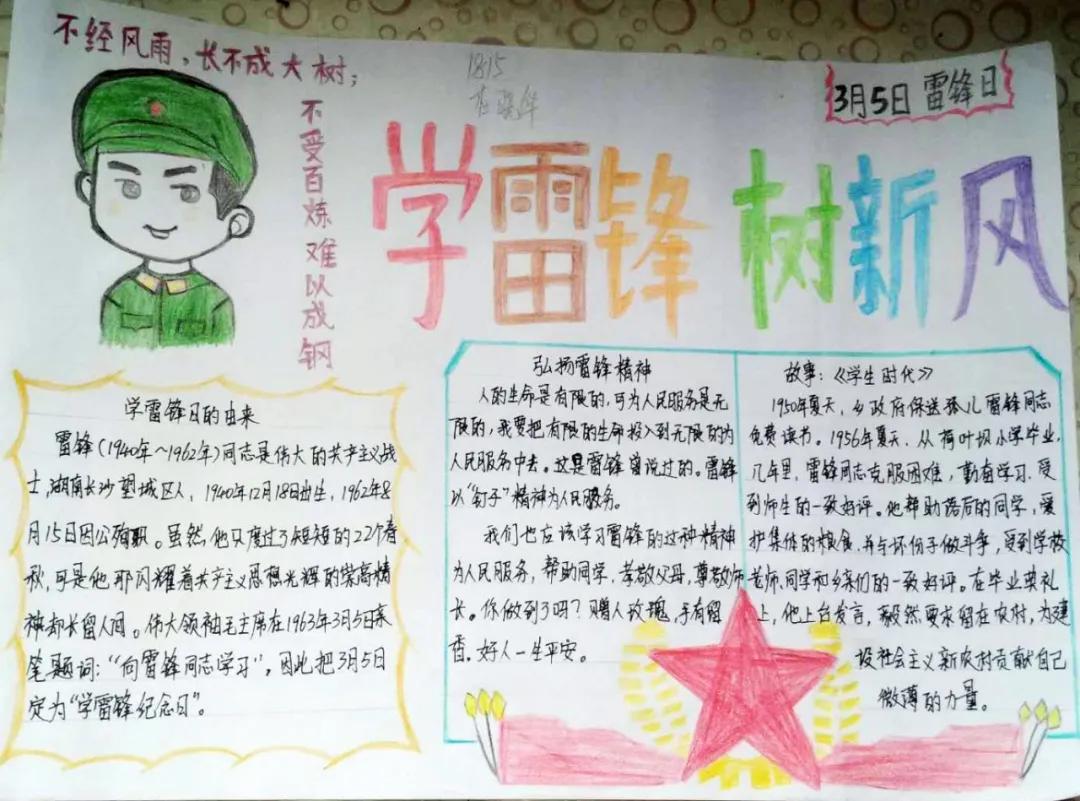 不经风雨，长不成大树；
不受百炼难以成钢
1815
3月5日 雷锋日
学雷锋 树新风
学雷锋日的由来
雷锋(1940年～1962年)同志是伟大的共产主义战
士,湖南长沙望城区人，1940年12月18日出生，1962年8
月15日因公殉职。虽然他只度过了短短的22个春
秋，可是他那闪耀着共产主义思想光辉的崇高精
神却长留人间。伟大领袖毛主席在1963年3月5日亲
笔题词：“向雷锋同志学习”，因此把3月5日
定为“学雷锋纪念日”。
弘扬雷锋精神
人的生命是有限的，可为人民服务是无
限的，我要把有限的生命投入到无限的为
人民服务中去。这是雷锋曾说过的。雷锋
以“钉子”精神为人民服务。
我们也应该学习雷锋的这种精神
为人民服务，帮助同学，孝敬父母，尊敬师
长。你做到了吗？赠人玫瑰，手有留
香。好人一生平安。
故事：《学生时代》
1950年夏天，乡政府保送孤儿雷锋同志
免费读书。1956年夏天，从荷叶坝小学毕业，
几年里，雷锋同志克服困难，勤奋学习，受
到师生的一致好评。他帮助落后的同学，爱
护集体的粮食，并与坏份子做斗争，受到学校
老师,同学和乡亲们的一致好评。在毕业典礼
上，他上台发言，毅然要求留在农村，为建
设社会主义新农村贡献自己
微薄的力量。